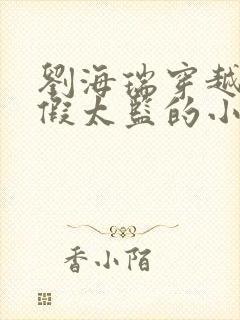 劉海瑞穿越
假太監的小
香小陌